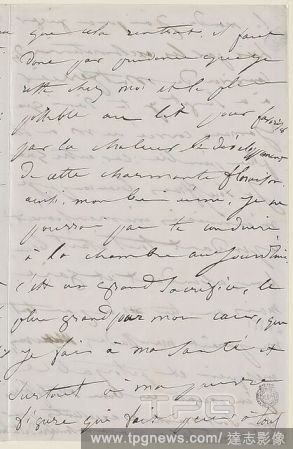 que cela rentrat, il faut
donc par prudence que je
reste chez moi et le plus
possible au lit pour favoriser
par la chaleur le développement
de cette charmante floraison.
ainsi, mon bien aimé, je ne
pourrai pas te conduire
à la chambre aujourd'hui.
c'est un grand sacrifice, le
plus grand pour mon cœur, que
je fais à ma santé et
surtout à ma pauvre
figure qui fait peur à tout
TPG
www.tpgnews.com / 達志影像